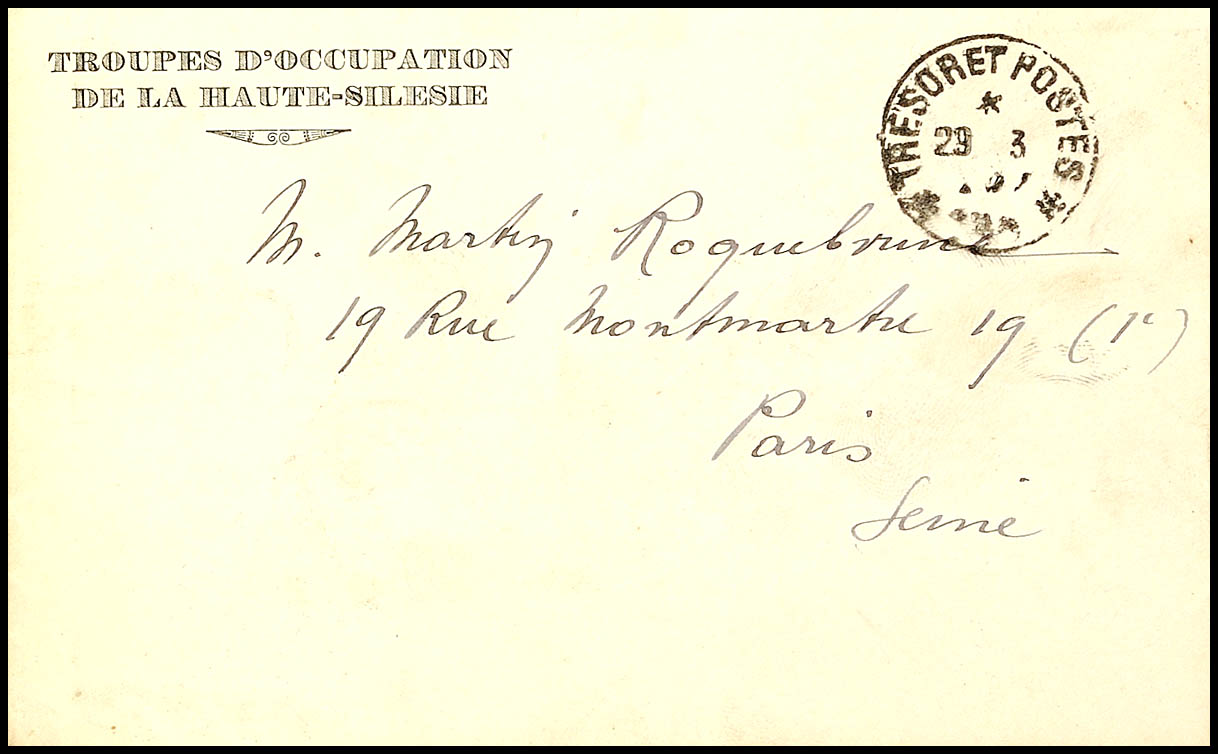 TROUPES D'OCCUPATION
DE LA HAUTE-SILESIE
TRESOR ET POSTES
29 3
M. Martin Roquebrune
19 Rue Montmartre 19 (1r)
Paris
Seine